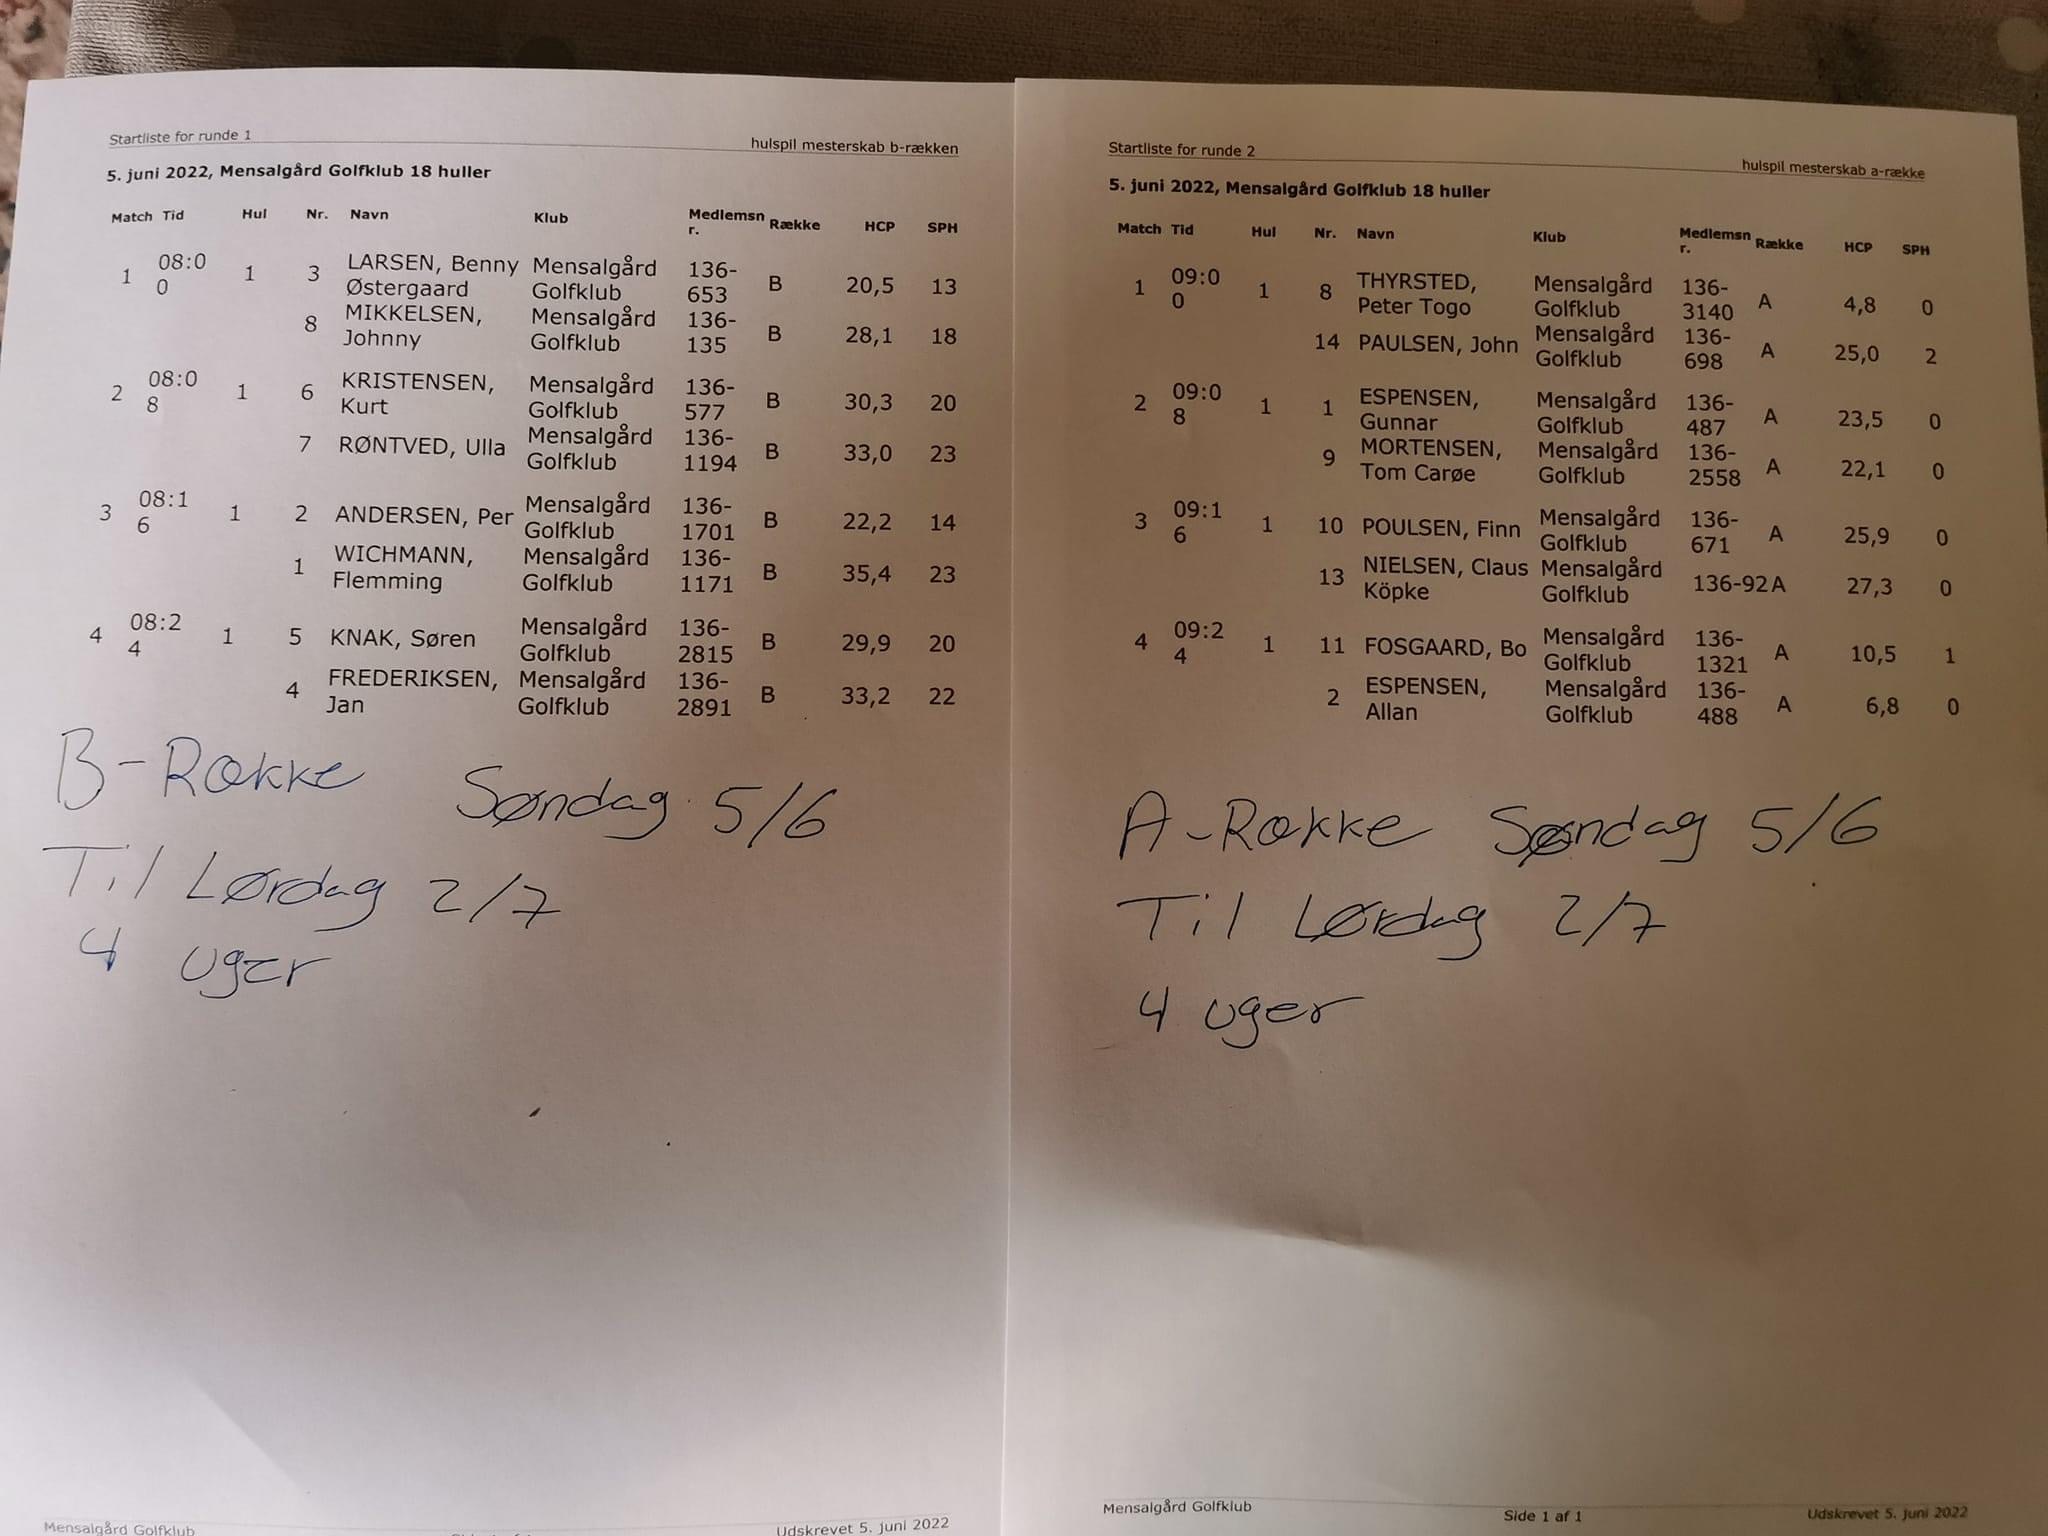 Startliste for runde 1
hulspil mesterskab b-rækken
5. juni 2022, Mensalgård Golfklub 18 huller
Match Tid Hul Nr. Navn Klub Medlemsn r. Række HCP SPH
1 08:0 0 1 3 LARSEN, Benny Østergaard Mensalgård Golfklub 136-653 B 20,5 13
8 MIKKELSEN, Johnny Mensalgård Golfklub 136-135 B 28,1 18
2 08:0 8 1 6 KRISTENSEN, Kurt Mensalgård Golfklub 136-577 B 30,3 20
7 RØNTVED, Ulla Mensalgård Golfklub 136-1194 B 33,0 23
3 08:1 6 1 2 ANDERSEN, Per Mensalgård Golfklub 136-1701 B 22,2 14
1 WICHMANN, Flemming Mensalgård Golfklub 136-1171 B 35,4 23
4 08:2 4 1 5 KNAK, Søren Mensalgård Golfklub 136-2815 B 29,9 20
4 FREDERIKSEN, Jan Mensalgård Golfklub 136-2891 B 33,2 22
B-Række Søndag 5/6
Til Lørdag 2/7
4 uger
Mensalgård Golfklub
Udskrevet 5. juni 2022
Startliste for runde 2
hulspil mesterskab a-række
5. juni 2022, Mensalgård Golfklub 18 huller
Match Tid Hul Nr. Navn Klub Medlemsn r. Række HCP SPH
1 09:0 0 1 8 THYRSTED, Peter Togo Mensalgård Golfklub 136-3140 A 4,8 0
14 PAULSEN, John Mensalgård Golfklub 136-698 A 25,0 2
2 09:0 8 1 1 ESPENSEN, Gunnar Mensalgård Golfklub 136-487 A 23,5 0
9 MORTENSEN, Tom Carøe Mensalgård Golfklub 136-2558 A 22,1 0
3 09:1 6 1 10 POULSEN, Finn Mensalgård Golfklub 136-671 A 25,9 0
13 NIELSEN, Claus Köpke Mensalgård Golfklub 136-92 A 27,3 0
4 09:2 4 1 11 FOSGAARD, Bo Mensalgård Golfklub 136-1321 A 10,5 1
2 ESPENSEN, Allan Mensalgård Golfklub 136-488 A 6,8 0
A-Række Søndag 5/6
Til Lørdag 2/7
4 uger
Mensalgård Golfklub Side 1 af 1 Udskrevet 5. juni 2022